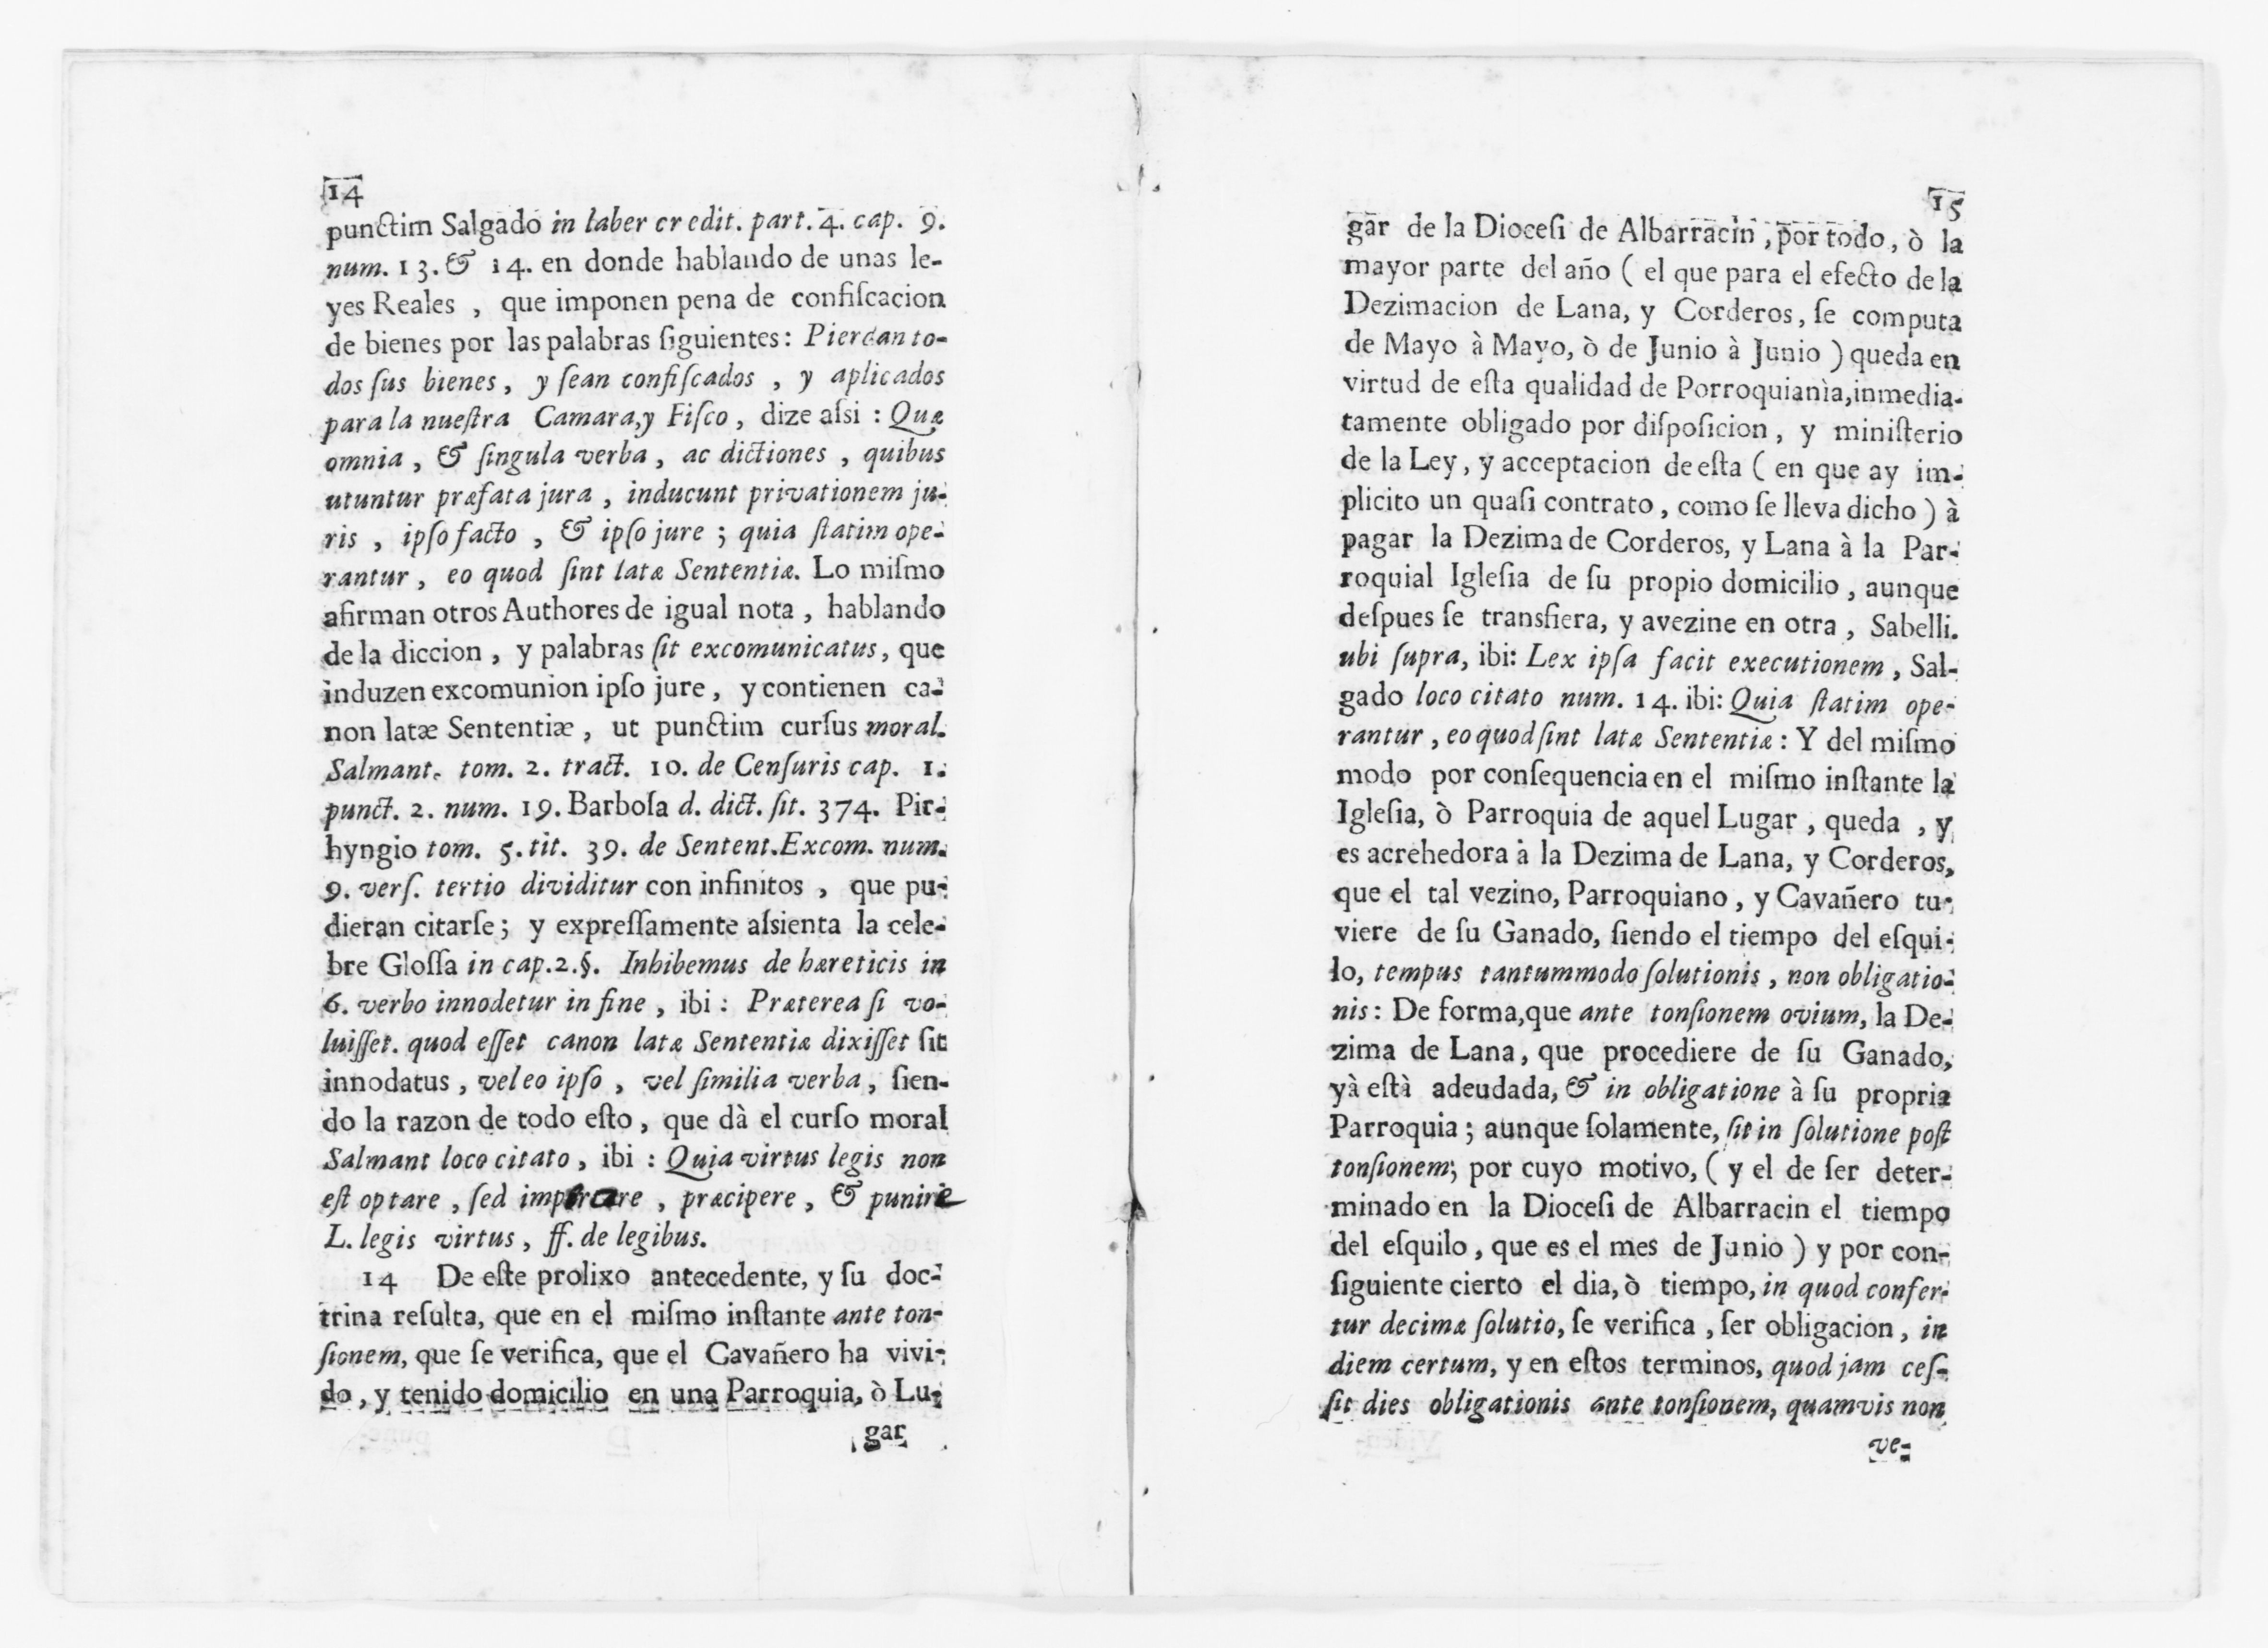 14
punctim Salgado in laber cr edit. part. 4. cap. 9.
num. 13. & 14. en donde hablando de unas le-
yes Reales , que imponen pena de confiſcacion
de bienes por las palabras ſiguientes: Pierdan to-
dos ſus bienes , y ſean confiſcados , y aplicados
para la nueſtra Camara,y Fiſco , dize aſsi : Quæ
omnia , & ſingula verba , ac dictiones , quibus
utuntur præfata jura , inducunt privationem ju-
ris , ipſo facto , & ipſo jure ; quia ſtatim ope-
rantur , eo quod ſint latæ Sententiæ. Lo miſmo
afirman otros Authores de igual nota , hablando
de la diccion , y palabras ſit excomunicatus, que
induzen excomunion ipſo jure , y contienen ca-
non latæ Sententiæ , ut punctim curſus moral.
Salmant. tom. 2. tract. 10. de Cenſuris cap. 1.
punct. 2. num. 19. Barboſa d. dict. ſit. 374. Pir-
hyngio tom. 5. tit. 39. de Sentent.Excom. num.
9. verſ. tertio dividitur con infinitos , que pu-
dieran citarſe; y expreſſamente aſsienta la cele-
bre Gloſſa in cap.2.§. Inhibemus de hæreticis in
6. verbo innodetur in fine , ibi : Præterea ſi vo-
luiſſet. quod eſſet canon latæ Sententiæ dixiſſet ſit
innodatus , vel eo ipſo , vel ſimilia verba , ſien-
do la razon de todo eſto , que dà el curſo moral
Salmant loco citato , ibi : Quia virtus legis non
eſt optare , ſed imperare , præcipere , & punire
L. legis virtus , ff. de legibus.
14 De eſte prolixo antecedente, y ſu doc-
trina reſulta, que en el miſmo inſtante ante ton-
ſionem, que ſe verifica, que el Cavañero ha vivi-
do , y tenido domicilio en una Parroquia, ò Lu-
gar
15
gar de la Dioceſi de Albarracin , por todo, ò la
mayor parte del año ( el que para el efecto de la
Dezimacion de Lana, y Corderos, ſe computa
de Mayo à Mayo, ò de Junio à Junio ) queda en
virtud de eſta qualidad de Porroquianìa,inmedia-
tamente obligado por diſpoſicion , y miniſterio
de la Ley, y acceptacion de eſta ( en que ay im-
plicito un quaſi contrato , como ſe lleva dicho ) à
pagar la Dezima de Corderos, y Lana à la Par-
roquial Igleſia de ſu propio domicilio , aunque
deſpues ſe transfiera, y avezine en otra , Sabelli.
ubi ſupra, ibi: Lex ipſa facit executionem , Sal-
gado loco citato num. 14. ibi: Quia ſtatim ope-
rantur , eo quod ſint latæ Sententiæ : Y del miſmo
modo por conſequencia en el miſmo inſtante la
Igleſia, ò Parroquia de aquel Lugar , queda , y
es acrehedora à la Dezima de Lana, y Corderos,
que el tal vezino, Parroquiano , y Cavañero tu-
viere de ſu Ganado, ſiendo el tiempo del eſqui-
lo, tempus tantummodo ſolutionis , non obligatio-
nis : De forma,que ante tonſionem ovium, la De-
zima de Lana, que procediere de ſu Ganado,
yà eſtà adeudada, & in obligatione à ſu propria
Parroquia ; aunque ſolamente, ſit in ſolutione poſt
tonſionem; por cuyo motivo, ( y el de ſer deter-
minado en la Dioceſi de Albarracin el tiempo
del eſquilo , que es el mes de Junio ) y por con-
ſiguiente cierto el dia, ò tiempo, in quod confer-
tur decimæ ſolutio, ſe verifica , ſer obligacion , in
diem certum, y en eſtos terminos, quod jam ceſ-
ſit dies obligationis ante tonſionem, quamvis non
ve-